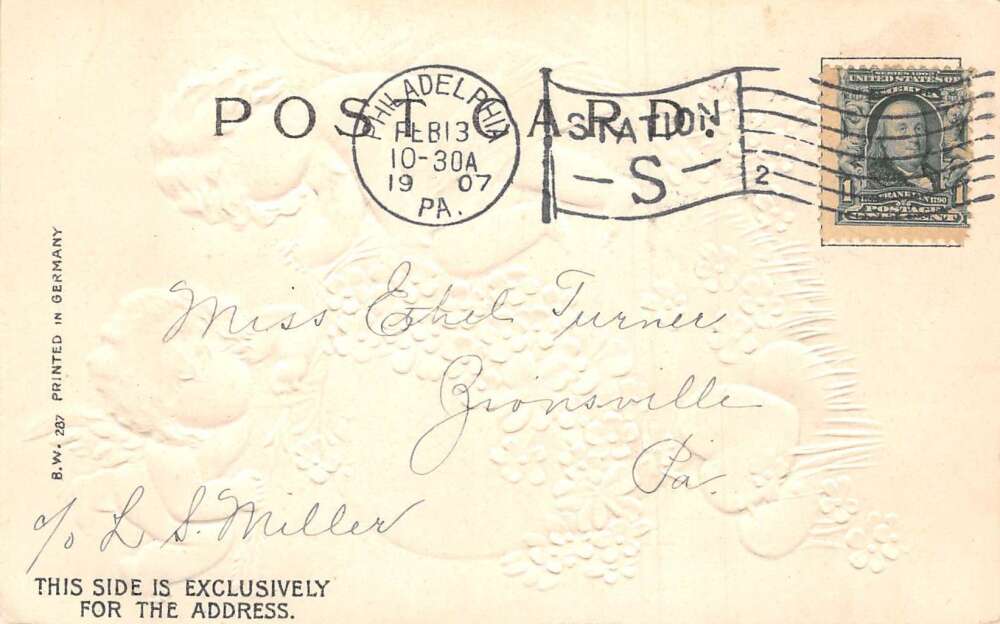 POST CARD.
PHILADELPHIA
FEB 13
10-30A
19 07
PA.
STATION
-S-
2
SERIES 1902
UNITED STATES OF
AMERICA
1 1
FRANKLIN 1790
POSTAGE
ONE CENT
B.W. 287 PRINTED IN GERMANY
Miss Ethel Turner.
Zionsville
Pa.
c/o L. S. Miller
THIS SIDE IS EXCLUSIVELY
FOR THE ADDRESS.